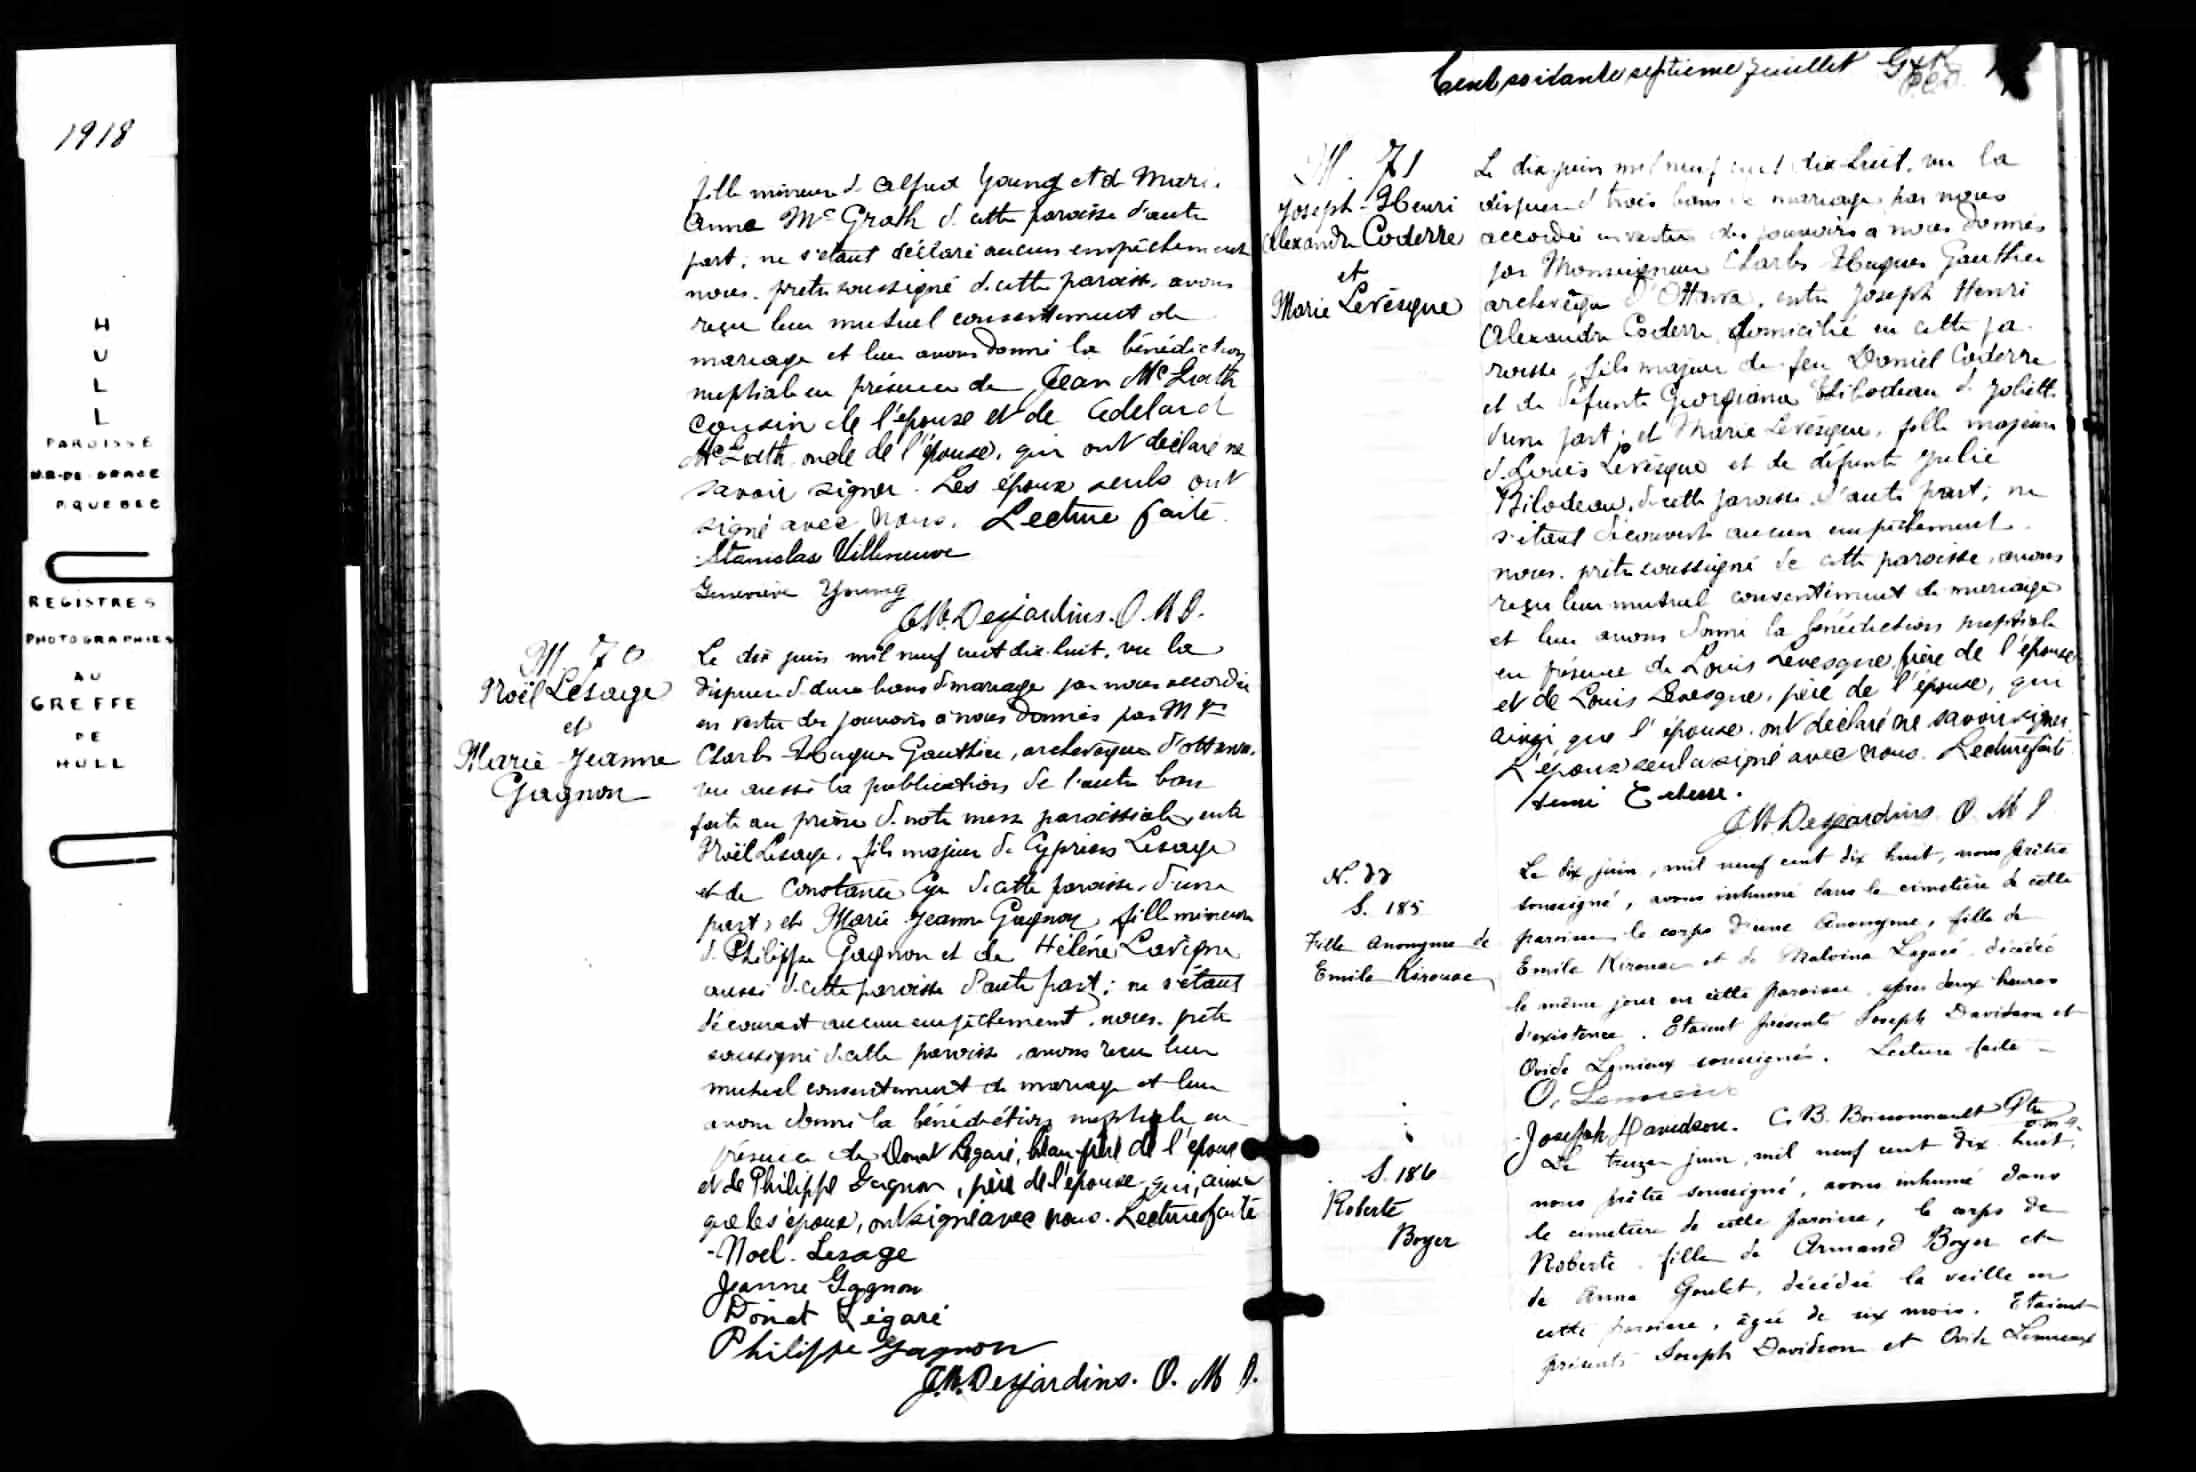 1918
H
U
L
L
PAROISSE
N.D.-DE GRACE
P. QUEBEC
REGISTRES
PHOTOGRAPHIES
AU
GREFFE
DE
HULL
fille mineure de Alfred Young et de Marie
Anna McGrath de cette paroisse d'autre
part; ne s'étant déclaré aucun empêchement
nous, prêtre soussigné de cette paroisse, avons
reçu leur mutuel consentement de
mariage et leur avons donné la bénédiction
nuptiale en présence de Jean McGrath
cousin de l'épouse et de Adelard
McGrath oncle de l'épouse, qui ont déclaré ne
savoir signer. Les époux seuls ont
signé avec nous. Lecture faite.
Stanislas Villeneuve
Genevieve Young
Desjardins. O. M. I.
M. 70
Noël Lesage
et
Marie-Jeanne
Gagnon
Le dix juin mil neuf cent dix-huit, vu la
dispense de deux bans de mariage par nous accordée
en vertu des pouvoirs à nous donnés par Mgr
Charles-Hugues Gauthier, archevêque d'Ottawa,
vu aussi la publication de l'autre ban
faite au prône de notre messe paroissiale, entre
Noël Lesage, fils majeur de Cyprien Lesage
et de Constance Cyr de cette paroisse, d'une
part, et Marie Jeanne Gagnon, fille mineure
de Philippe Gagnon et de Hélène Lavigne
aussi de cette paroisse d'autre part; ne s'étant
découvert aucun empêchement, nous, prêtre
soussigné de cette paroisse, avons reçu leur
mutuel consentement de mariage et leur
avons donné la bénédiction nuptiale en
présence de Donat Légaré, beau-père de l'époux
et de Philippe Gagnon, père de l'épouse, qui, ainsi
que les époux, ont signé avec nous. Lecture faite
-Noel. Lesage
Jeanne Gagnon
Donat Légaré
Philippe Gagnon
Desjardins. O. M. I.
Cent soixante septième feuillet
M. 71
Joseph-Henri
Alexandre Coderre
et
Marie Levesque
Le dix juin mil neuf cent dix-huit, vu la
dispense de trois bans de mariage par nous
accordée en vertu des pouvoirs à nous donnés
par Monseigneur Charles Hugues Gauthier
archevêque d'Ottawa, entre Joseph Henri
Alexandre Coderre domicilié en cette pa-
roisse, fils majeur de feu Daniel Coderre
et de défunte Georgiana Thibodeau de Joliette
d'une part; et Marie Levesque, fille majeure
de Louis Levesque et de défunte Julie
Bilodeau, de cette paroisse, d'autre part; ne
s'étant découvert aucun empêchement,
nous, prêtre soussigné de cette paroisse, avons
reçu leur mutuel consentement de mariage
et leur avons donné la bénédiction nuptiale
en présence de Louis Levesque, frère de l'épouse
et de Louis Levesque, père de l'épouse, qui
ainsi que l'épouse ont déclaré ne savoir signer
L'époux seul a signé avec nous. Lecture faite
Henri
Desjardins O. M. I
N. 77
S. 185
Fille Anonyme de
Emile Kirouac
Le dix juin, mil neuf cent dix huit, nous prêtre
soussigné, avons inhumé dans le cimetière de cette
paroisse le corps d'une Anonyme, fille de
Emile Kirouac et de Malvina Legacé, décédée
le même jour en cette paroisse, après deux heures
d'existence. Etaient présents Joseph Davidson et
Ovide Lemieux soussignés. Lecture faite -
O. Lemieux
Joseph Davidson. C. B. Ptre
o.m.i.
S. 186
Roberte
Boyer
Le treize juin, mil neuf cent dix huit,
nous prêtre soussigné, avons inhumé dans
le cimetière de cette paroisse, le corps de
Roberte, fille de Armand Boyer et
de Anna Goulet, décédée la veille en
cette paroisse, âgée de six mois. Etaient
présents Joseph Davidson et Ovide Lemieux